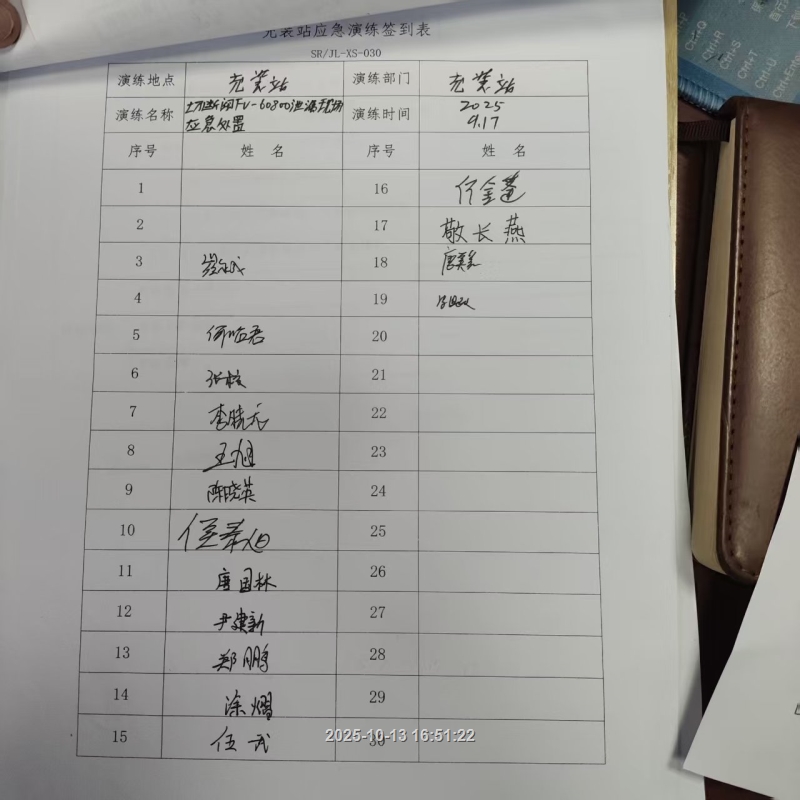 充装站应急演练签到表
SR/JL-XS-030
演练地点 充装站 演练部门 充装站
演练名称 切断阀FV-60800泄漏现场应急处置 演练时间 2025 9.17
序号 姓 名 序号 姓 名
1 16
2 17 敬长燕
3 18
4 19
5 20
6 21
7 李晓元 22
8 王旭 23
9 陈晓英 24
10 25
11 唐国林 26
12 尹建新 27
13 郑鹏 28
14 涂熠 29
15 伍武 30
2025-10-13 16:51:22
Ctrl+Q
Ctrl+R
Ctrl+S
Ctrl+T
Ctrl+U